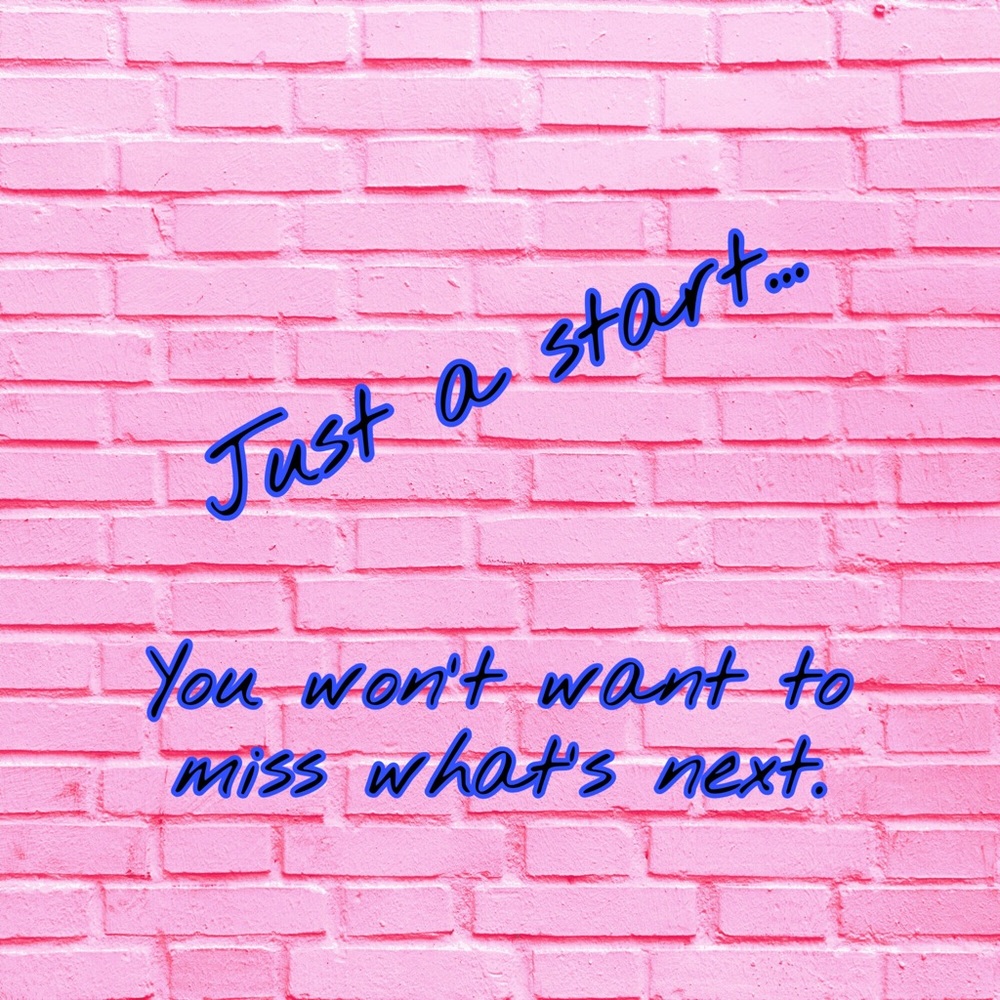 Just a start...
You won't want to
miss what's next.